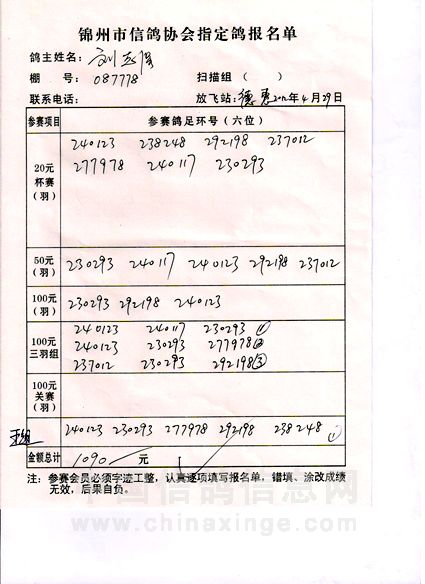 锦州市信鸽协会指定鸽报名单
鸽主姓名：刘
棚 号：087778 扫描组（ ）
联系电话： 放飞站：德惠 2012年4月29日
参赛项目 参赛鸽足环号（六位）
20元杯赛（羽） 240123 238248 292198 237012
277978 240117 230293
50元（羽） 230293 240117 240123 292198 237012
100元（羽） 230293 292198 240123
100元三羽组 240123 240117 230293 ①
240123 230293 277978 ②
237012 230293 292198 ③
100元关赛（羽）
240123 230293 277978 292198 238248 ①
金额总计 1090 元
注：参赛会员必须字迹工整，认真逐项填写报名单，错填、涂改成绩
无效，后果自负。
中国信鸽信息网
www.chinaxinge.com